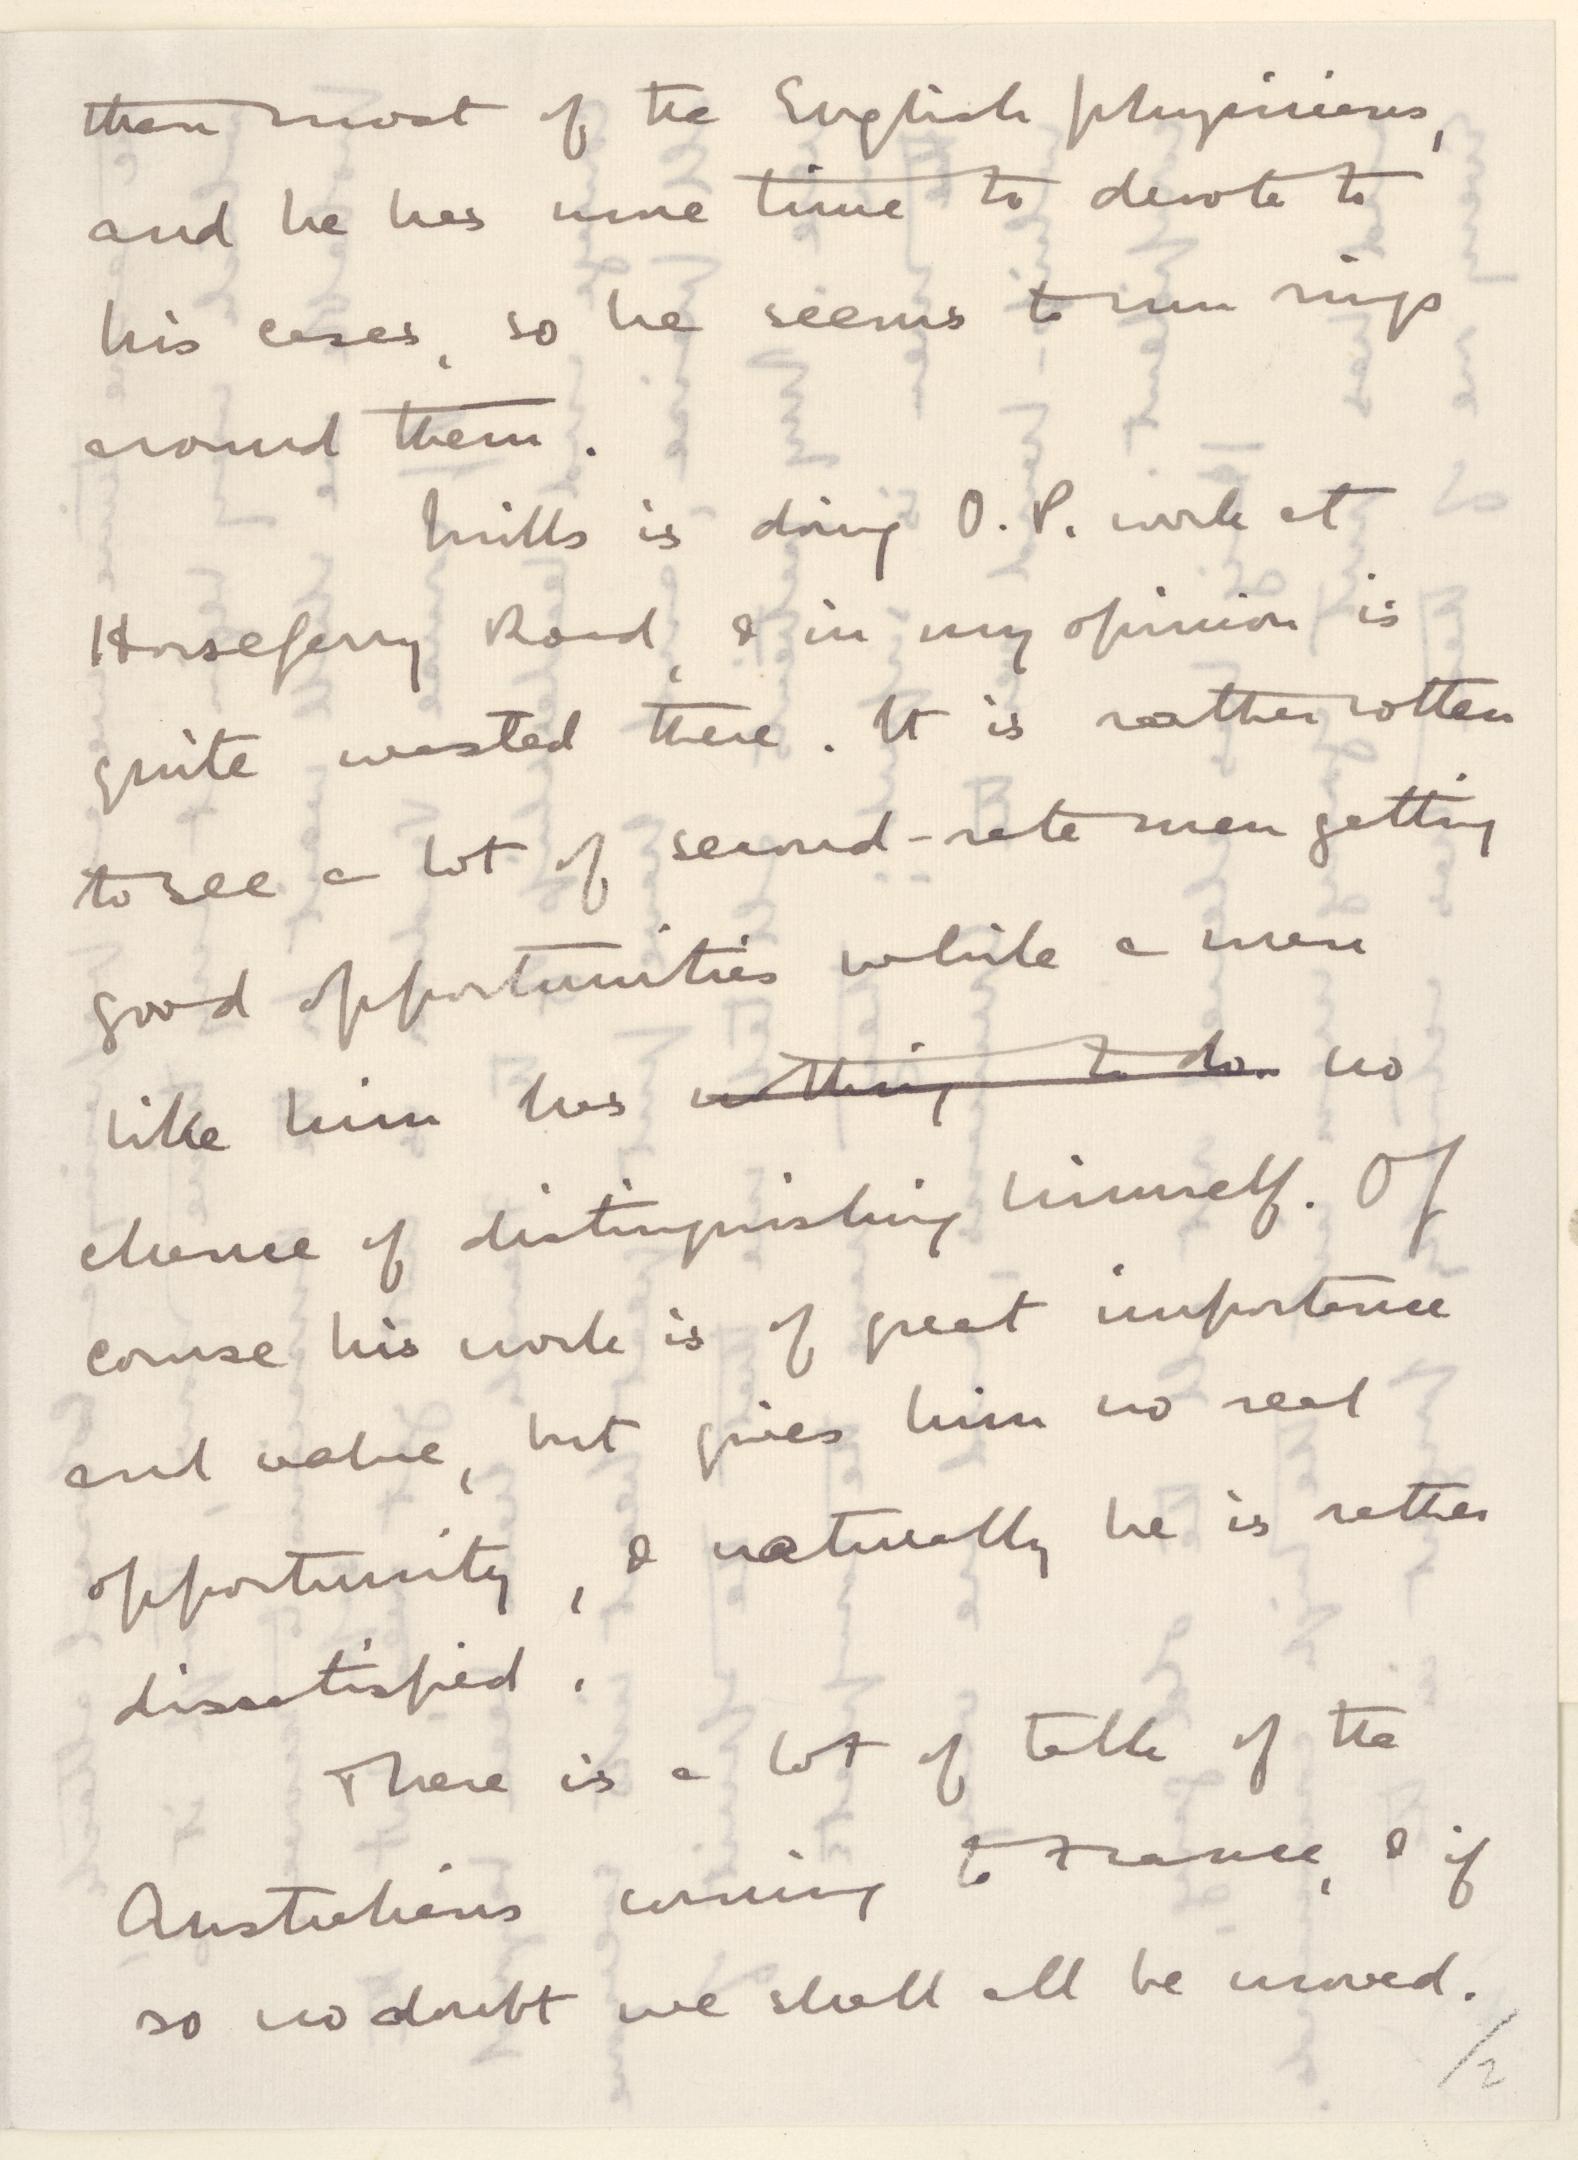 than most of the English physicians,
and he has more time to devote to
his cases, so he seems to run rings
around them.
Mills is doing O.P. work at
Horseferry Road, & in my opinion is
quite wasted there. It is rather rotten
to see a lot of second-rate men getting
good opportunities while a man
like him has nothing to do. no
chance of distinguishing himself. Of
course his work is of great importance
and value, but gives him no real
opportunity, & naturally he is rather
dissatisfied.
There is a lot of talk of the
Australians coming to France, & if
so no doubt we shall all be moved.
/2